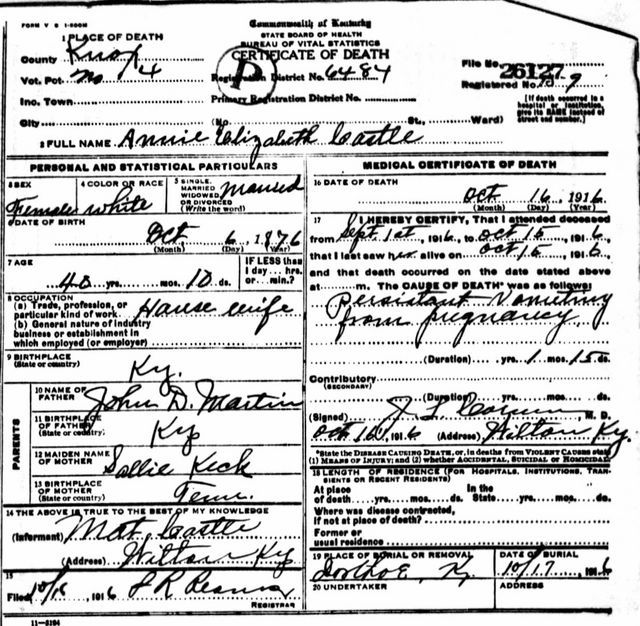 FORM V S 1-500M
Commonwealth of Kentucky
STATE BOARD OF HEALTH
BUREAU OF VITAL STATISTICS
CERTIFICATE OF DEATH
1 PLACE OF DEATH
County Knox
Vot. Pct. No 4
Registration District No. 6484
File No. 26127
Registered No. 9
Inc. Town
Primary Registration District No.
[If death occurred in a hospital or institution, give its NAME instead of street and number.]
City (No. St., Ward)
P
2 FULL NAME Annie Elizabeth Castle
PERSONAL AND STATISTICAL PARTICULARS
3 SEX Female
4 COLOR OR RACE white
5 SINGLE, MARRIED WIDOWED OR DIVORCED (Write the word) married
6 DATE OF BIRTH
Oct. 6, 1876
(Month) (Day) (Year)
7 AGE
40 yrs. mos. 10 ds.
IF LESS than 1 day... hrs. or... min.?
8 OCCUPATION
(a) Trade, profession, or particular kind of work House wife
(b) General nature of industry business or establishment in which employed (or employer)
9 BIRTHPLACE (State or country) Ky.
PARENTS
10 NAME OF FATHER John D. Martin
11 BIRTHPLACE OF FATHER (State or country) Ky
12 MAIDEN NAME OF MOTHER Sallie Keck
13 BIRTHPLACE OF MOTHER (State or country) Tenn.
14 THE ABOVE IS TRUE TO THE BEST OF MY KNOWLEDGE
(Informant) Mat Castle
(Address) Wilton Ky
15
Filed 10/16, 1916 REGISTRAR
11-5194
MEDICAL CERTIFICATE OF DEATH
16 DATE OF DEATH
Oct 16, 1916
(Month) (Day) (Year)
17 I HEREBY CERTIFY, That I attended deceased
from Sept 1st, 1916, to Oct 15, 1916,
that I last saw her alive on Oct 15, 1916
and that death occurred on the date stated above
at m. The CAUSE OF DEATH* was as follows:
Persistant Vomiting
from pregnancy
(Duration) yrs. 1 mos. 15 ds.
Contributory (SECONDARY)
(Duration) yrs. mos. ds.
(Signed) J. L. M. D.
Oct 16, 1916 (Address) Wilton Ky.
*State the DISEASE CAUSING DEATH, or, in deaths from VIOLENT CAUSES state (1) MEANS OF INJURY; and (2) whether ACCIDENTAL, SUICIDAL or HOMICIDAL.
18 LENGTH OF RESIDENCE (FOR HOSPITALS, INSTITUTIONS, TRANSIENTS OR RECENT RESIDENTS)
At place of death yrs. mos. ds. In the State yrs. mos. ds.
Where was disease contracted, if not at place of death?
Former or usual residence
19 PLACE OF BURIAL OR REMOVAL Ky.
DATE OF BURIAL 10/17, 1916
20 UNDERTAKER
ADDRESS